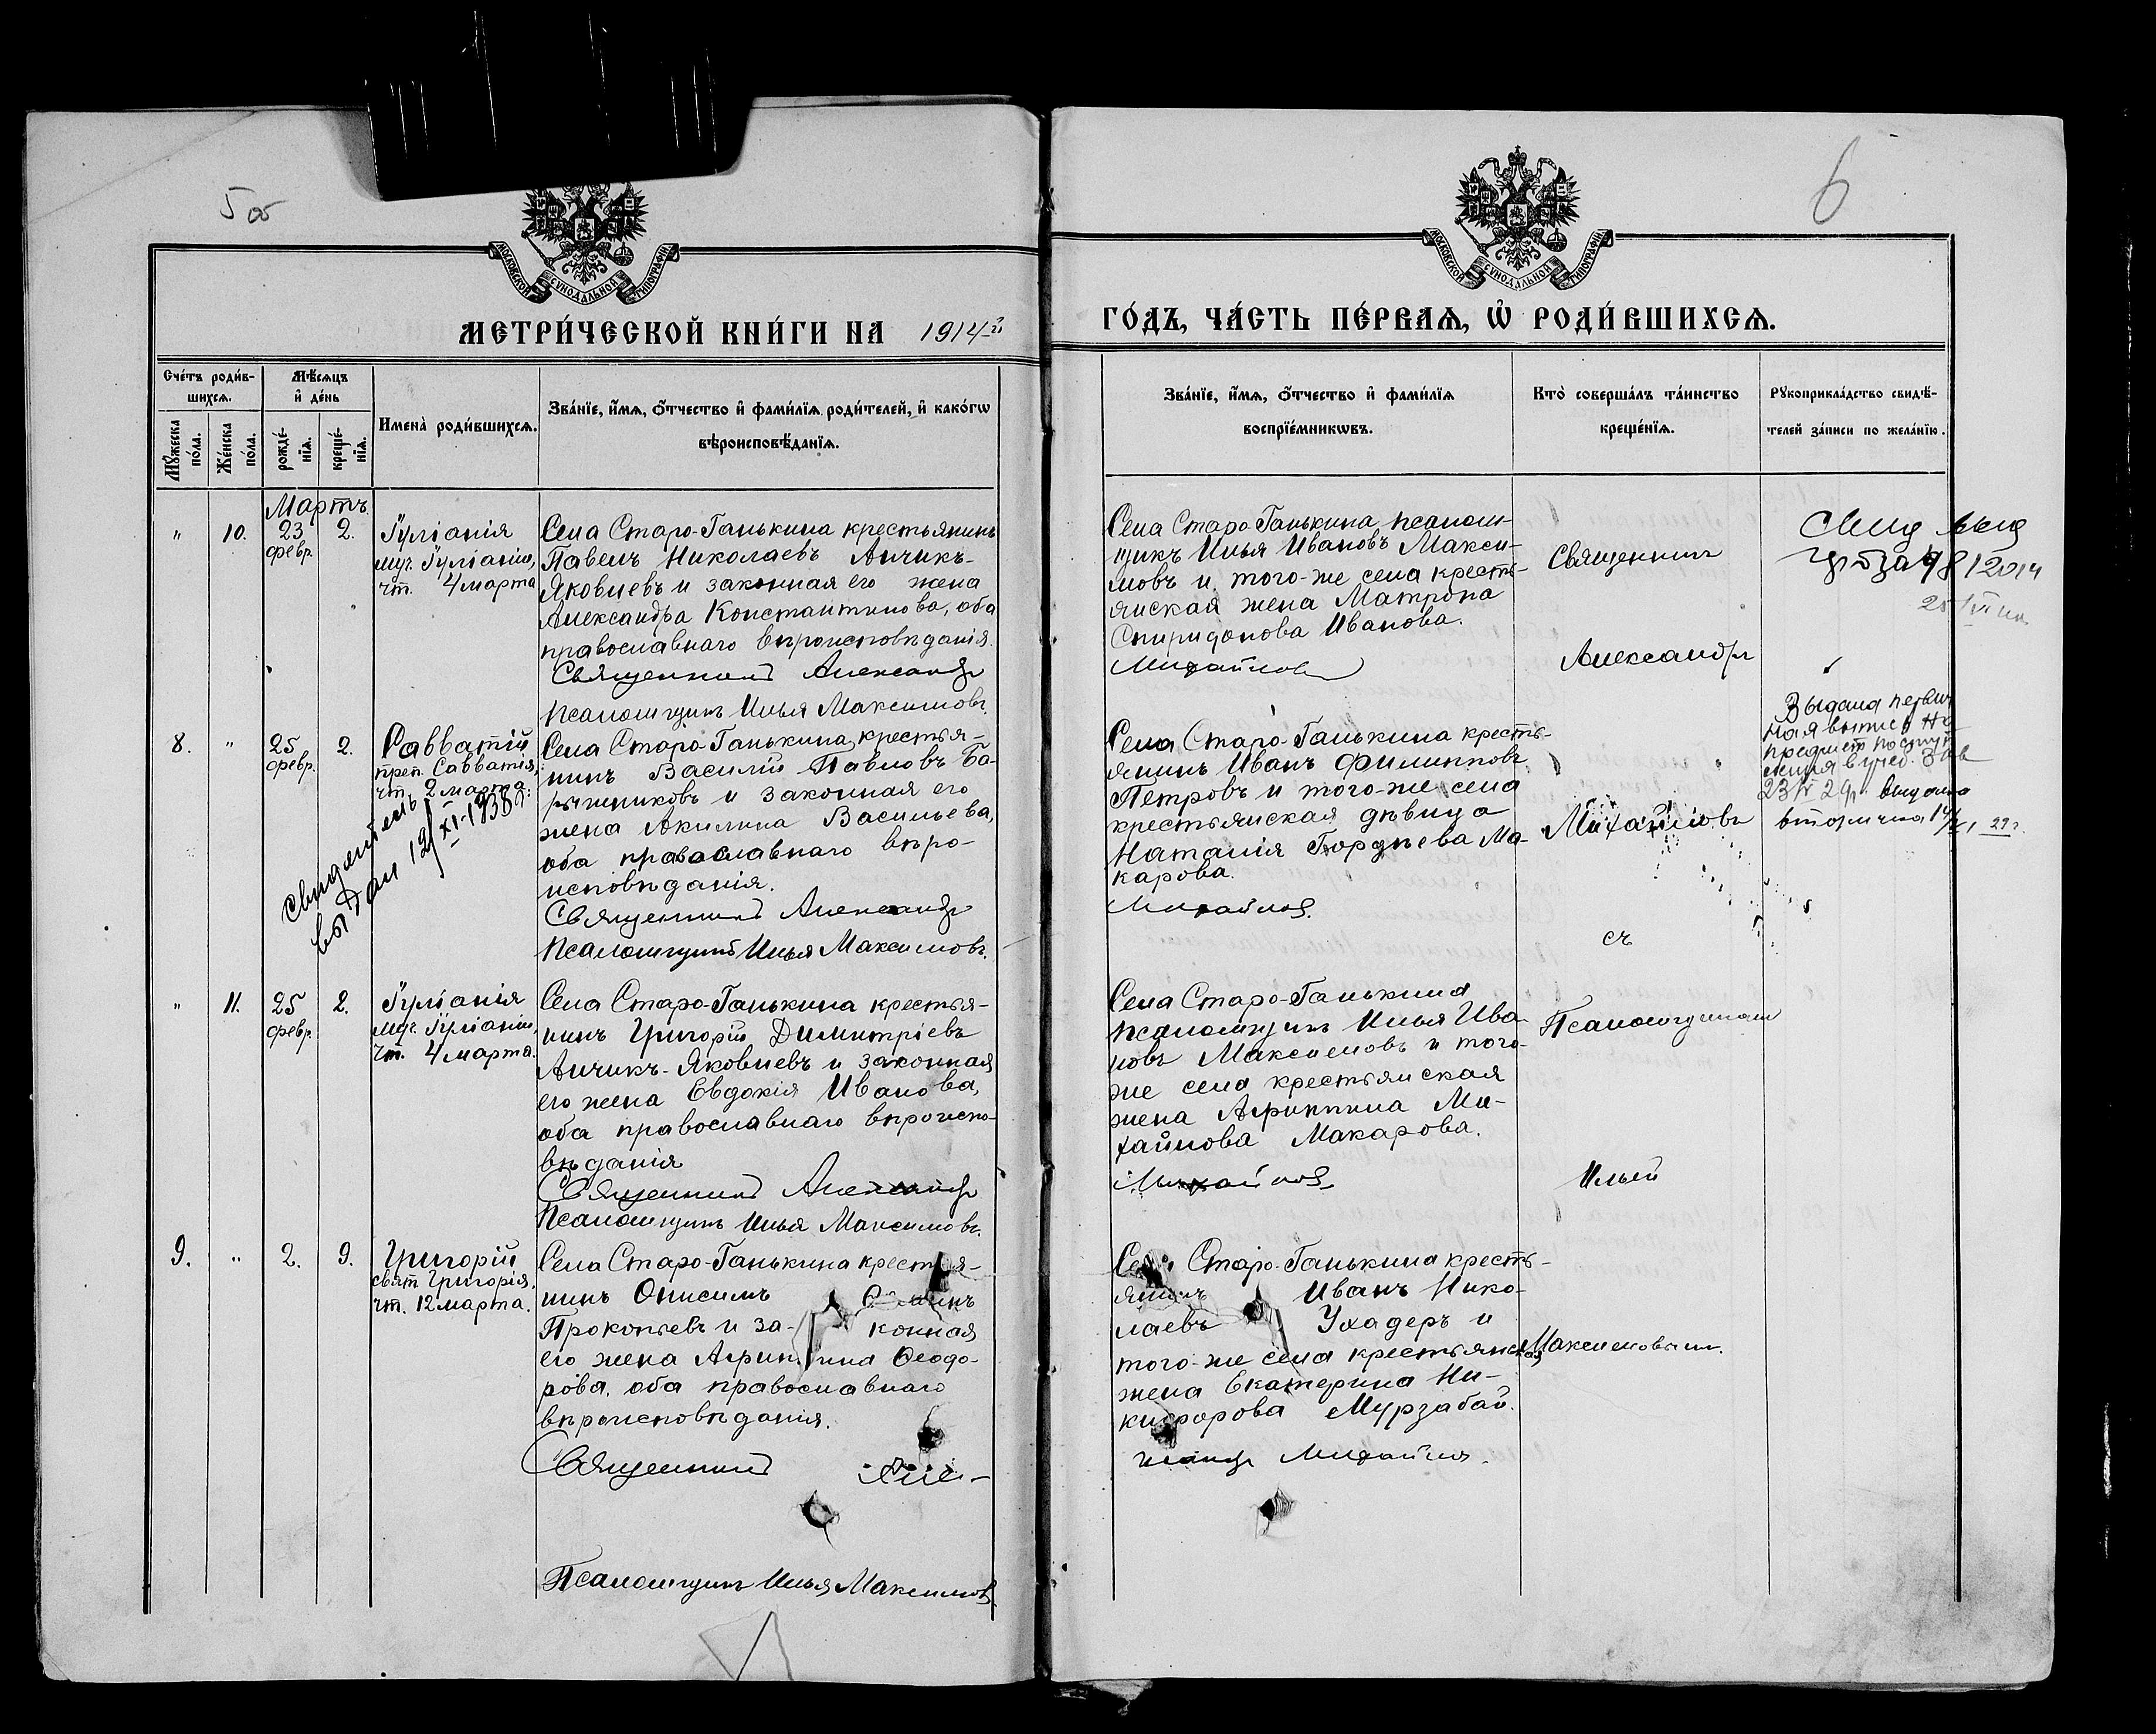 5 об
6
МОСКОВСКОЙ СѴНОДАЛЬНОЙ ТИПОГРАФІИ
МОСКОВСКОЙ СѴНОДАЛЬНОЙ ТИПОГРАФІИ
МЕТРИ́ЧЕСКОЙ КНИ́ГИ НА 1914-й
ГО́ДЪ, ЧА́СТЬ ПЕ́РВАѦ, Ѡ РОДИ́ВШИХСѦ.
Сче́тъ роди́в-
шихсѧ.
Мꙋ́жеска по́ла.
Же́нска по́ла.
Мѣ́сѧцъ
и де́нь
рожде́-
нїѧ.
креще́-
нїѧ.
Имена̀ роди́вшихсѧ.
Зва́нїе, и́мѧ, ѻ́тчество и фами́лїѧ роди́телей, и како́гѡ
вѣроисповѣ́данїѧ.
Зва́нїе, и́мѧ, ѻ́тчество и фами́лїѧ
воспрїе́мникѡвъ.
Кто̀ соверша́лъ та́инство
креще́нїѧ.
Рꙋкоприкла́дство свидѣ́-
телей за́писи по жела́нїю.
Мартъ.
" 10. 23 2.
февр.
Іуліанія
муч. Іуліаніи,
чт. 4 марта
Села Старо-Ганькина крестьянинъ
Павелъ Николаевъ Анчикъ-
Яковлевъ и законная его жена
Александра Константинова, оба
православнаго вѣроисповѣданія.
Священникъ Александръ
Псаломщикъ Илья Максимовъ.
Села Старо-Ганькина псалом-
щикъ Илья Ивановъ Макси-
мовъ и того-же села кресть-
янская жена Матрона
Спиридонова Иванова.
Михайловъ
Священникъ
Александръ
8. " 25 2.
февр.
Савватій
преп. Савватія,
чт. 2 марта.
Свидѣтель
выдан 12/XI-1938г.
Села Старо-Ганькина, крестья-
нинъ Василій Павловъ Ба-
рышниковъ и законная его
жена Акилина Васильева,
оба православнаго вѣро-
исповѣданія.
Священникъ Александръ
Псаломщикъ Илья Максимовъ.
Села Старо-Ганькина кресть-
янинъ Иванъ Филипповъ
Петровъ и того-же села
крестьянская дѣвица
Наталія Гордѣева Ма-
карова.
Михайловъ.
Михайловъ
съ
Выдана
23 29г. выдана
вторична
" 11. 25 2.
февр.
Іуліанія
муч. Іуліаніи,
чт. 4 марта.
Села Старо-Ганькина крестья-
нинъ Григорій Димитріевъ
Анчикъ-Яковлевъ и законная
его жена Евдокія Иванова,
оба православнаго вѣроиспо-
вѣданія
Священникъ Александръ
Псаломщикъ Илья Максимовъ.
Села Старо-Ганькина
псаломщикъ Илья Ива-
новъ Максимовъ и того-
же села крестьянская
жена Агриппина Ми-
хайлова Макарова.
Михайловъ
Псаломщикомъ
Ильей
9. " 2. 9.
Григорій
свят. Григорія,
чт. 12 марта.
Села Старо-Ганькина крестья-
нинъ Онисимъ
Прокопьевъ и за- конная
его жена Агриппина Ѳеодо-
рова, оба православнаго
вѣроисповѣданія.
Священникъ Але-
Псаломщикъ Илья Максимовъ.
Села Старо-Ганькина кресть-
янинъ Иванъ Нико-
лаевъ Ухадеръ и
того-же села крестьянская
жена Екатерина Ни-
кифорова Мурзабай.
ксандръ Михайловъ.
Максимовымъ.